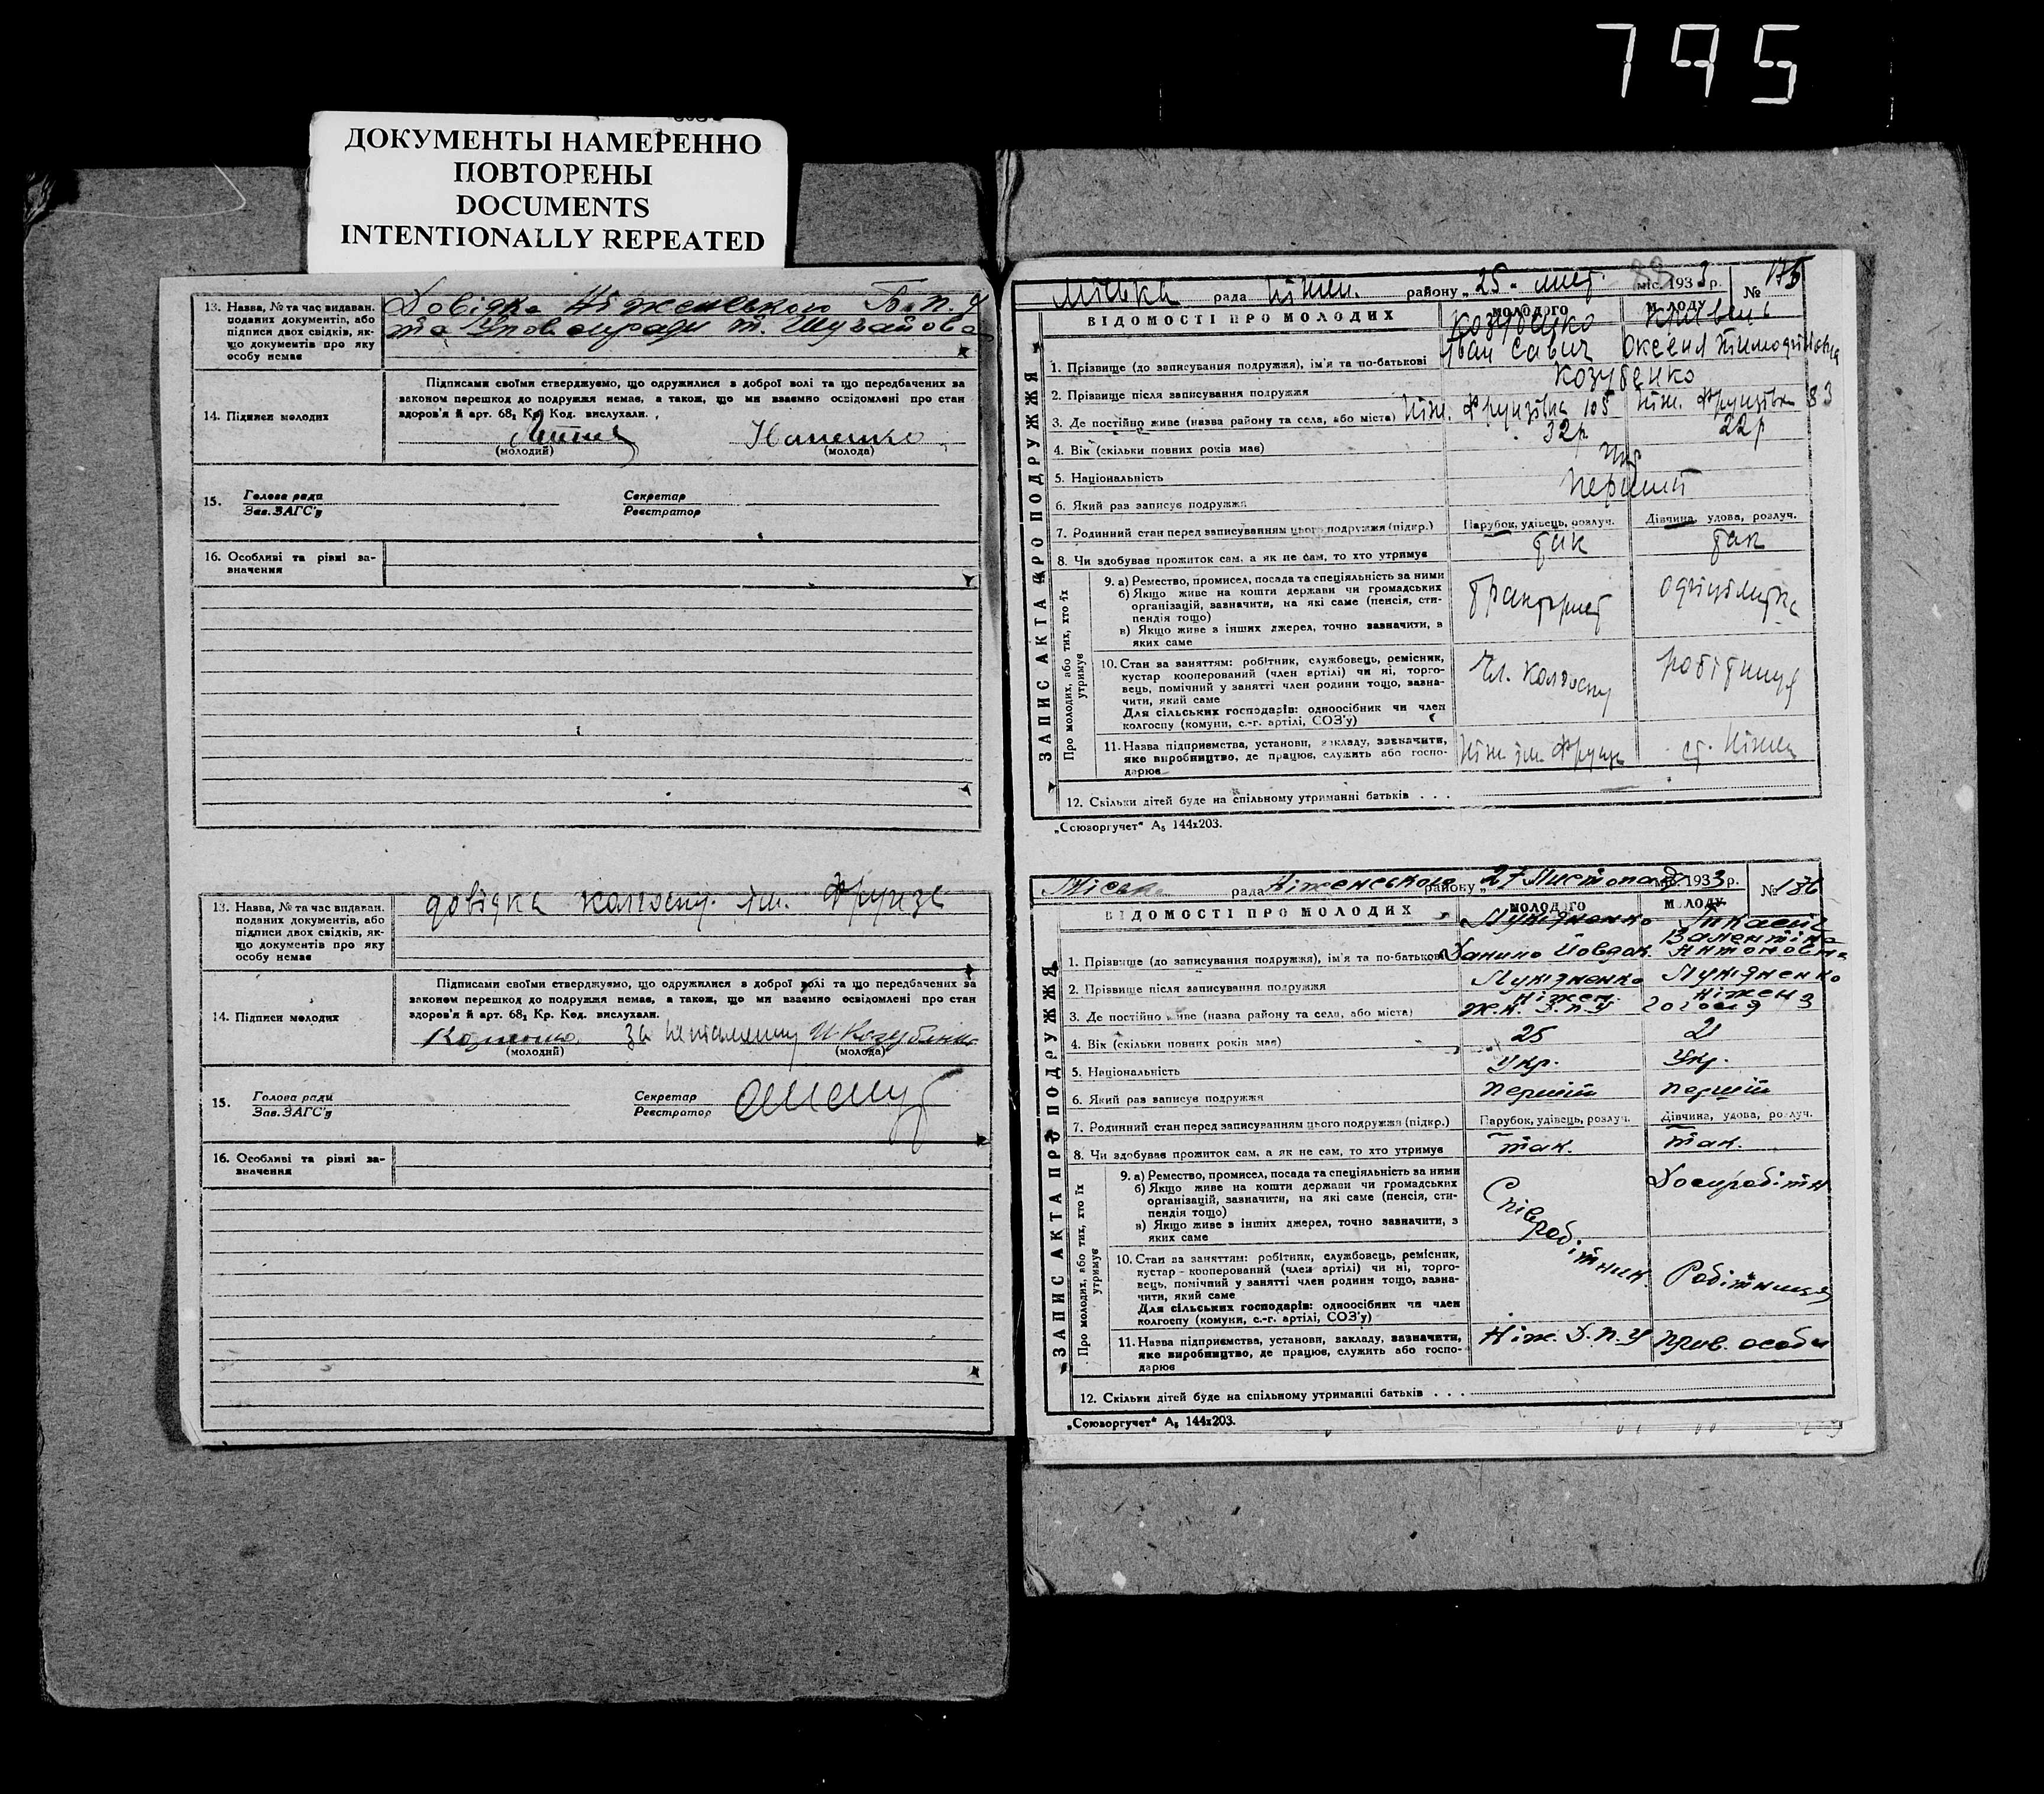 795
ДОКУМЕНТЫ НАМЕРЕННО
ПОВТОРЕНЫ
DOCUMENTS
INTENTIONALLY REPEATED
13. Назва, № та час видаван.
поданих документів, або
підписи двох свідків, як-
що документів про яку
особу немає
Довідка Ніженського
та
14. Підписи молодих
Підписами своїми стверджуємо, що одружилися в доброї волі та що передбачених за
законом перешкод до подружжя немає, а також, що ми взаємно освідомлені про стан
здоров'я й арт. 68₁ Кр. Код. вислухали.
(молодий) (молода)
15. Голова ради Секретар
Зав. ЗАГС'у Реєстратор
16. Особливі та рівні за-
значення
13. Назва, № та час видаван.
поданих документів, або
підписи двох свідків, як-
що документів про яку
особу немає
довідка колгоспу ім. Фрунзе
14. Підписи молодих
Підписами своїми стверджуємо, що одружилися в доброї волі та що передбачених за
законом перешкод до подружжя немає, а також, що ми взаємно освідомлені про стан
здоров'я й арт. 68₁ Кр. Код. вислухали.
за неписьменну
(молодий) (молода)
15. Голова ради Секретар
Зав. ЗАГС'у Реєстратор
16. Особливі та рівні за-
значення
Міська рада Ніжен. району „25" лист. міс. 1933 р. №
ЗАПИС АКТА ПРО ПОДРУЖЖЯ
ВІДОМОСТІ ПРО МОЛОДИХ МОЛОДОГО МОЛОДУ
Козубенко Кравець
1. Прізвище (до записування подружжя), ім'я та по-батькові Іван Савич Оксеня
2. Прізвище після записування подружжя Козубенко
3. Де постійно живе (назва району та села, або міста) Ніж. Фрунзівка 105 Ніж. Фрунзівка 83
4. Вік (скільки повних років має) 32р 22р
5. Національність Укр
6. Який раз записує подружжя Перший
7. Родинний стан перед записуванням цього подружжя (підкр.) Парубок, удівець, розлуч. Дівчина, удова, розлуч.
8. Чи здобуває прожиток сам, а як не сам, то хто утримує так так
Про молодих, або тих, хто їх утримує
9. а) Ремество, промисел, посада та спеціяльність за ними
б) Якщо живе на кошти держави чи громадських
організацій, зазначити, на які саме (пенсія, сти-
пендія тощо)
в) Якщо живе з інших джерел, точно зазначити, з
яких саме
тракторист
10. Стан за заняттям: робітник, службовець, ремісник,
кустар кооперований (член артілі) чи ні, торго-
вець, помічний у занятті член родини тощо, зазна-
чити, який саме
Для сільських господарів: одноосібник чи член
колгоспу (комуни, с.-г. артілі, СОЗ'у)
чл. колгоспу робітниця
11. Назва підприємства, установи, закладу, зазначити,
яке виробництво, де працює, служить або госпо-
дарює
Ніж ім. Фрунзе ст. Ніжен
12. Скільки дітей буде на спільному утриманні батьків . . .
„Союзоргучет" А₅ 144х203.
Міська рада Ніженського району „27 Листопада міс. 1933 р. № 186
ЗАПИС АКТА ПРО ПОДРУЖЖЯ
ВІДОМОСТІ ПРО МОЛОДИХ МОЛОДОГО МОЛОДУ
Лук'яненко
Валентина
1. Прізвище (до записування подружжя), ім'я та по-батькові Данило Йовдок. Антоновна
2. Прізвище після записування подружжя Лук'яненко Лук'яненко
Ніжен. Ніжен
3. Де постійно живе (назва району та села, або міста)
4. Вік (скільки повних років має) 25 21
5. Національність Укр. Укр.
6. Який раз записує подружжя перший перший
7. Родинний стан перед записуванням цього подружжя (підкр.) Парубок, удівець, розлуч. Дівчина, удова, розлуч.
8. Чи здобуває прожиток сам, а як не сам, то хто утримує так. так.
Про молодих, або тих, хто їх утримує
9. а) Ремество, промисел, посада та спеціяльність за ними
б) Якщо живе на кошти держави чи громадських
організацій, зазначити, на які саме (пенсія, сти-
пендія тощо)
в) Якщо живе з інших джерел, точно зазначити, з
яких саме
Співробітник. Домробітн
10. Стан за заняттям: робітник, службовець, ремісник,
кустар-кооперований (член артілі) чи ні, торго-
вець, помічний у занятті член родини тощо, зазна-
чити, який саме
Для сільських господарів: одноосібник чи член
колгоспу (комуни, с.-г. артілі, СОЗ'у)
Робітниця
11. Назва підприємства, установи, закладу, зазначити,
яке виробництво, де працює, служить або госпо-
дарює
Ніж. Д.П.У прив. особи
12. Скільки дітей буде на спільному утриманні батьків . . .
„Союзоргучет" А₅ 144х203.